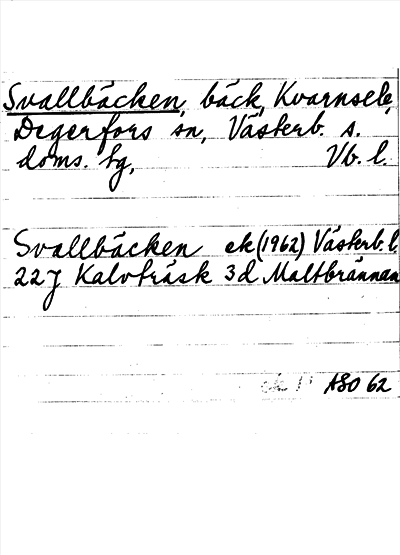 Svallbäcken, bäck, Kvarnsele,
Degerfors sn, Västerb. s.
doms. tg, Vb. l.
Svallbäcken ek (1962) Västerb. l.
22 J Kalvträsk 3 d Maltbrännan
ASO 62